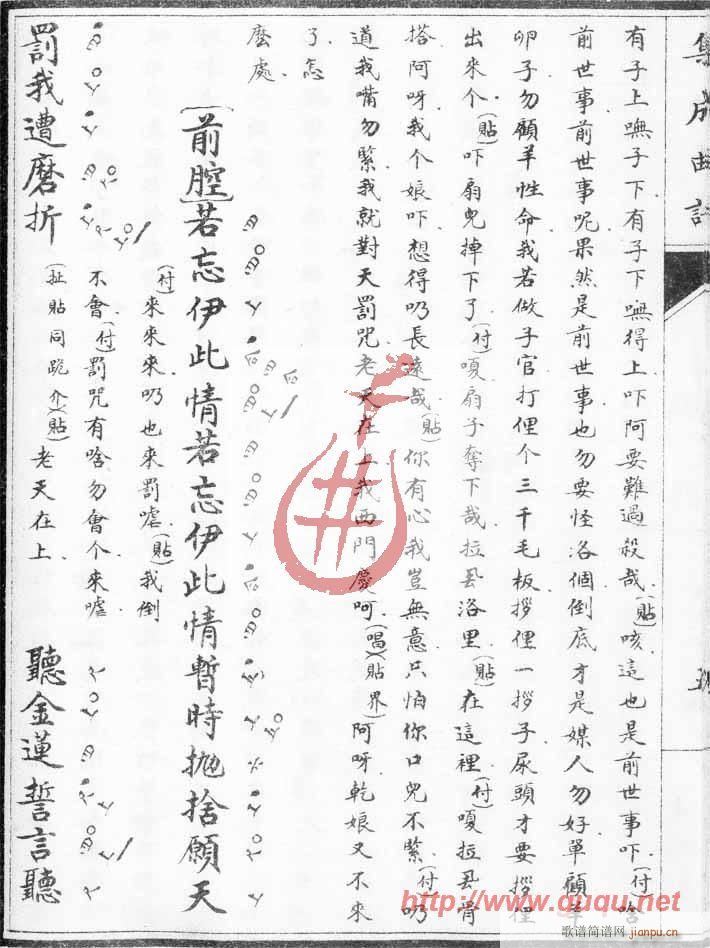 集成曲譜
有子上嘸子下有子下嘸得上吓阿要難過殺哉(貼)咳這也是前世事吓(付)啥
前世事前世事呢果然是前世事也勿要怪洛個倒底才是媒人勿好單顧羊
卵子勿顧羊性命我若做子官打俚个三千毛板拶俚一拶子尿頭才要拶俚
出來个(貼)吓扇兒掉下了(付)嗄扇子奪下哉拉厾洛里(貼)在這裡(付)嗄拉厾骨
搭阿呀我个娘吓想得叨長遠哉(貼)你有心我豈無意只怕你口兒不緊(付)叨
道我嘴勿緊我就對天罰咒老天在上我西門慶呵(唱)(貼界)阿呀乾娘又不來
了怎
麼處
[前腔]若忘伊此情若忘伊此情暫時抛捨願天
(付)來來來叨也來罰嘘(貼)我倒
不會(付)罰咒有啥勿會个來嘘
(扯貼同跪介)(貼)老天在上
罰我遭磨折
聽金蓮誓言聽
http://www.ququ.net
歌谱简谱网
jianpu.cn